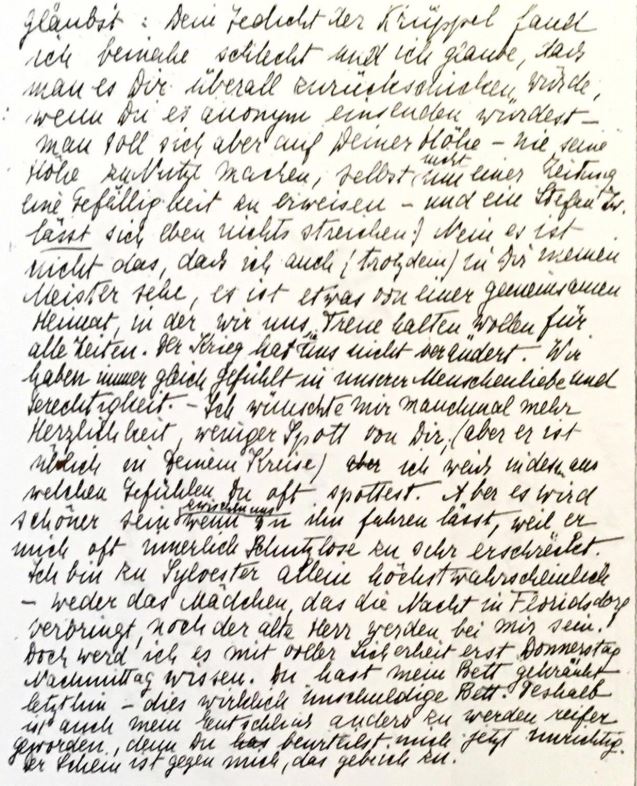 glaubst: Dein Gedicht der Krüppel fand
ich beinahe schlecht und ich glaube, dass
man es Dir überall zurückschicken würde,
wenn Du es anonym einsenden würdest –
man soll sich aber auf Deiner Höhe – nie seine
Höhe zu Nutze machen, selbst nicht um einer Zeitung
eine Gefälligkeit zu erweisen – und ein Stefan Zw.
lässt sich eben nichts streichen!) Nein es ist
nicht das, dass ich auch (trotzdem) in Dir meinen
Meister sehe, es ist etwas von einer gemeinsamen
Heimat, in der wir uns Treue halten wollen für
alle Zeiten. Der Krieg hat uns nicht verändert. Wir
haben immer gleich gefühlt in unserer Menschenliebe und
Gerechtigkeit. – Ich wünschte mir manchmal mehr
Herzlichkeit, weniger Spott von Dir, (aber er ist
üblich in Deinem Kreise) aber ich weiss indess aus
welchen Gefühlen Du oft spottest. Aber es wird
schöner sein wenn Du ihn fahren lässt, weil er
mich oft innerlich Schutzlose zu sehr erschreckt.
Ich bin zu Sylvester allein höchstwahrscheinlich
– weder das Mädchen, das die Nacht in Floridsdorf
verbringt, noch der alte Herr werden bei mir sein.
Doch werd ich es mit voller Sicherheit erst Donnerstag
Nachmittag wissen. Du hast mein Bett gekränkt
letzthin – dies wirklich unschuldige Bett. Deshalb
ist auch mein Entschluss anders zu werden reifer
geworden, denn Du beurteilst mich jetzt unrichtig.
Der Schein ist gegen mich, das geb ich zu.